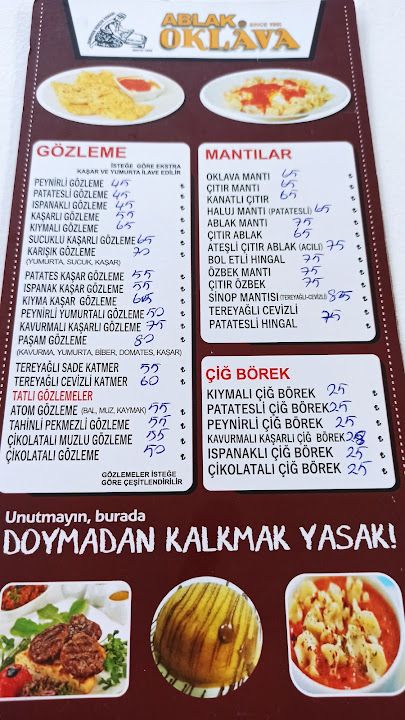 ABLAK
SINCE 1991
OKLAVA
GÖZLEME
İSTEĞE GÖRE EKSTRA
KAŞAR VE YUMURTA İLAVE EDİLİR
PEYNİRLİ GÖZLEME 45 ₺
PATATESLİ GÖZLEME 45 ₺
ISPANAKLI GÖZLEME 45 ₺
KAŞARLI GÖZLEME 55 ₺
KIYMALI GÖZLEME 65 ₺
SUCUKLU KAŞARLI GÖZLEME 65 ₺
KARIŞIK GÖZLEME 70 ₺
(YUMURTA, SUCUK, KAŞAR)
PATATES KAŞAR GÖZLEME 55 ₺
ISPANAK KAŞAR GÖZLEME 55 ₺
KIYMA KAŞAR GÖZLEME ₺
PEYNİRLİ YUMURTALI GÖZLEME 50 ₺
KAVURMALI KAŞARLI GÖZLEME 75 ₺
PAŞAM GÖZLEME 80 ₺
(KAVURMA, YUMURTA, BİBER, DOMATES, KAŞAR)
TEREYAĞLI SADE KATMER 55 ₺
TEREYAĞLI CEVİZLİ KATMER 60 ₺
TATLI GÖZLEMELER
ATOM GÖZLEME (BAL, MUZ, KAYMAK) 55 ₺
TAHİNLİ PEKMEZLİ GÖZLEME 55 ₺
ÇİKOLATALI MUZLU GÖZLEME 55 ₺
ÇİKOLATALI GÖZLEME 50 ₺
GÖZLEMELER İSTEĞE
GÖRE ÇEŞİTLENDİRİLİR
MANTILAR
OKLAVA MANTI 65 ₺
ÇITIR MANTI 65 ₺
KANATLI ÇITIR 65 ₺
HALUJ MANTI (PATATESLİ) 65 ₺
ABLAK MANTI 75 ₺
ÇITIR ABLAK 65 ₺
ATEŞLİ ÇITIR ABLAK (ACILI) 75 ₺
BOL ETLİ HINGAL 75 ₺
ÖZBEK MANTI 75 ₺
ÇITIR ÖZBEK 75 ₺
SİNOP MANTISI (TEREYAĞLI-CEVİZLİ) 85 ₺
TEREYAĞLI CEVİZLİ 75 ₺
PATATESLİ HINGAL ₺
ÇİĞ BÖREK
KIYMALI ÇİĞ BÖREK 25 ₺
PATATESLİ ÇİĞ BÖREK 25 ₺
PEYNİRLİ ÇİĞ BÖREK 25 ₺
KAVURMALI KAŞARLI ÇİĞ BÖREK ₺
ISPANAKLI ÇİĞ BÖREK 25 ₺
ÇİKOLATALI ÇİĞ BÖREK 25 ₺
Unutmayın, burada
DOYMADAN KALKMAK YASAK!